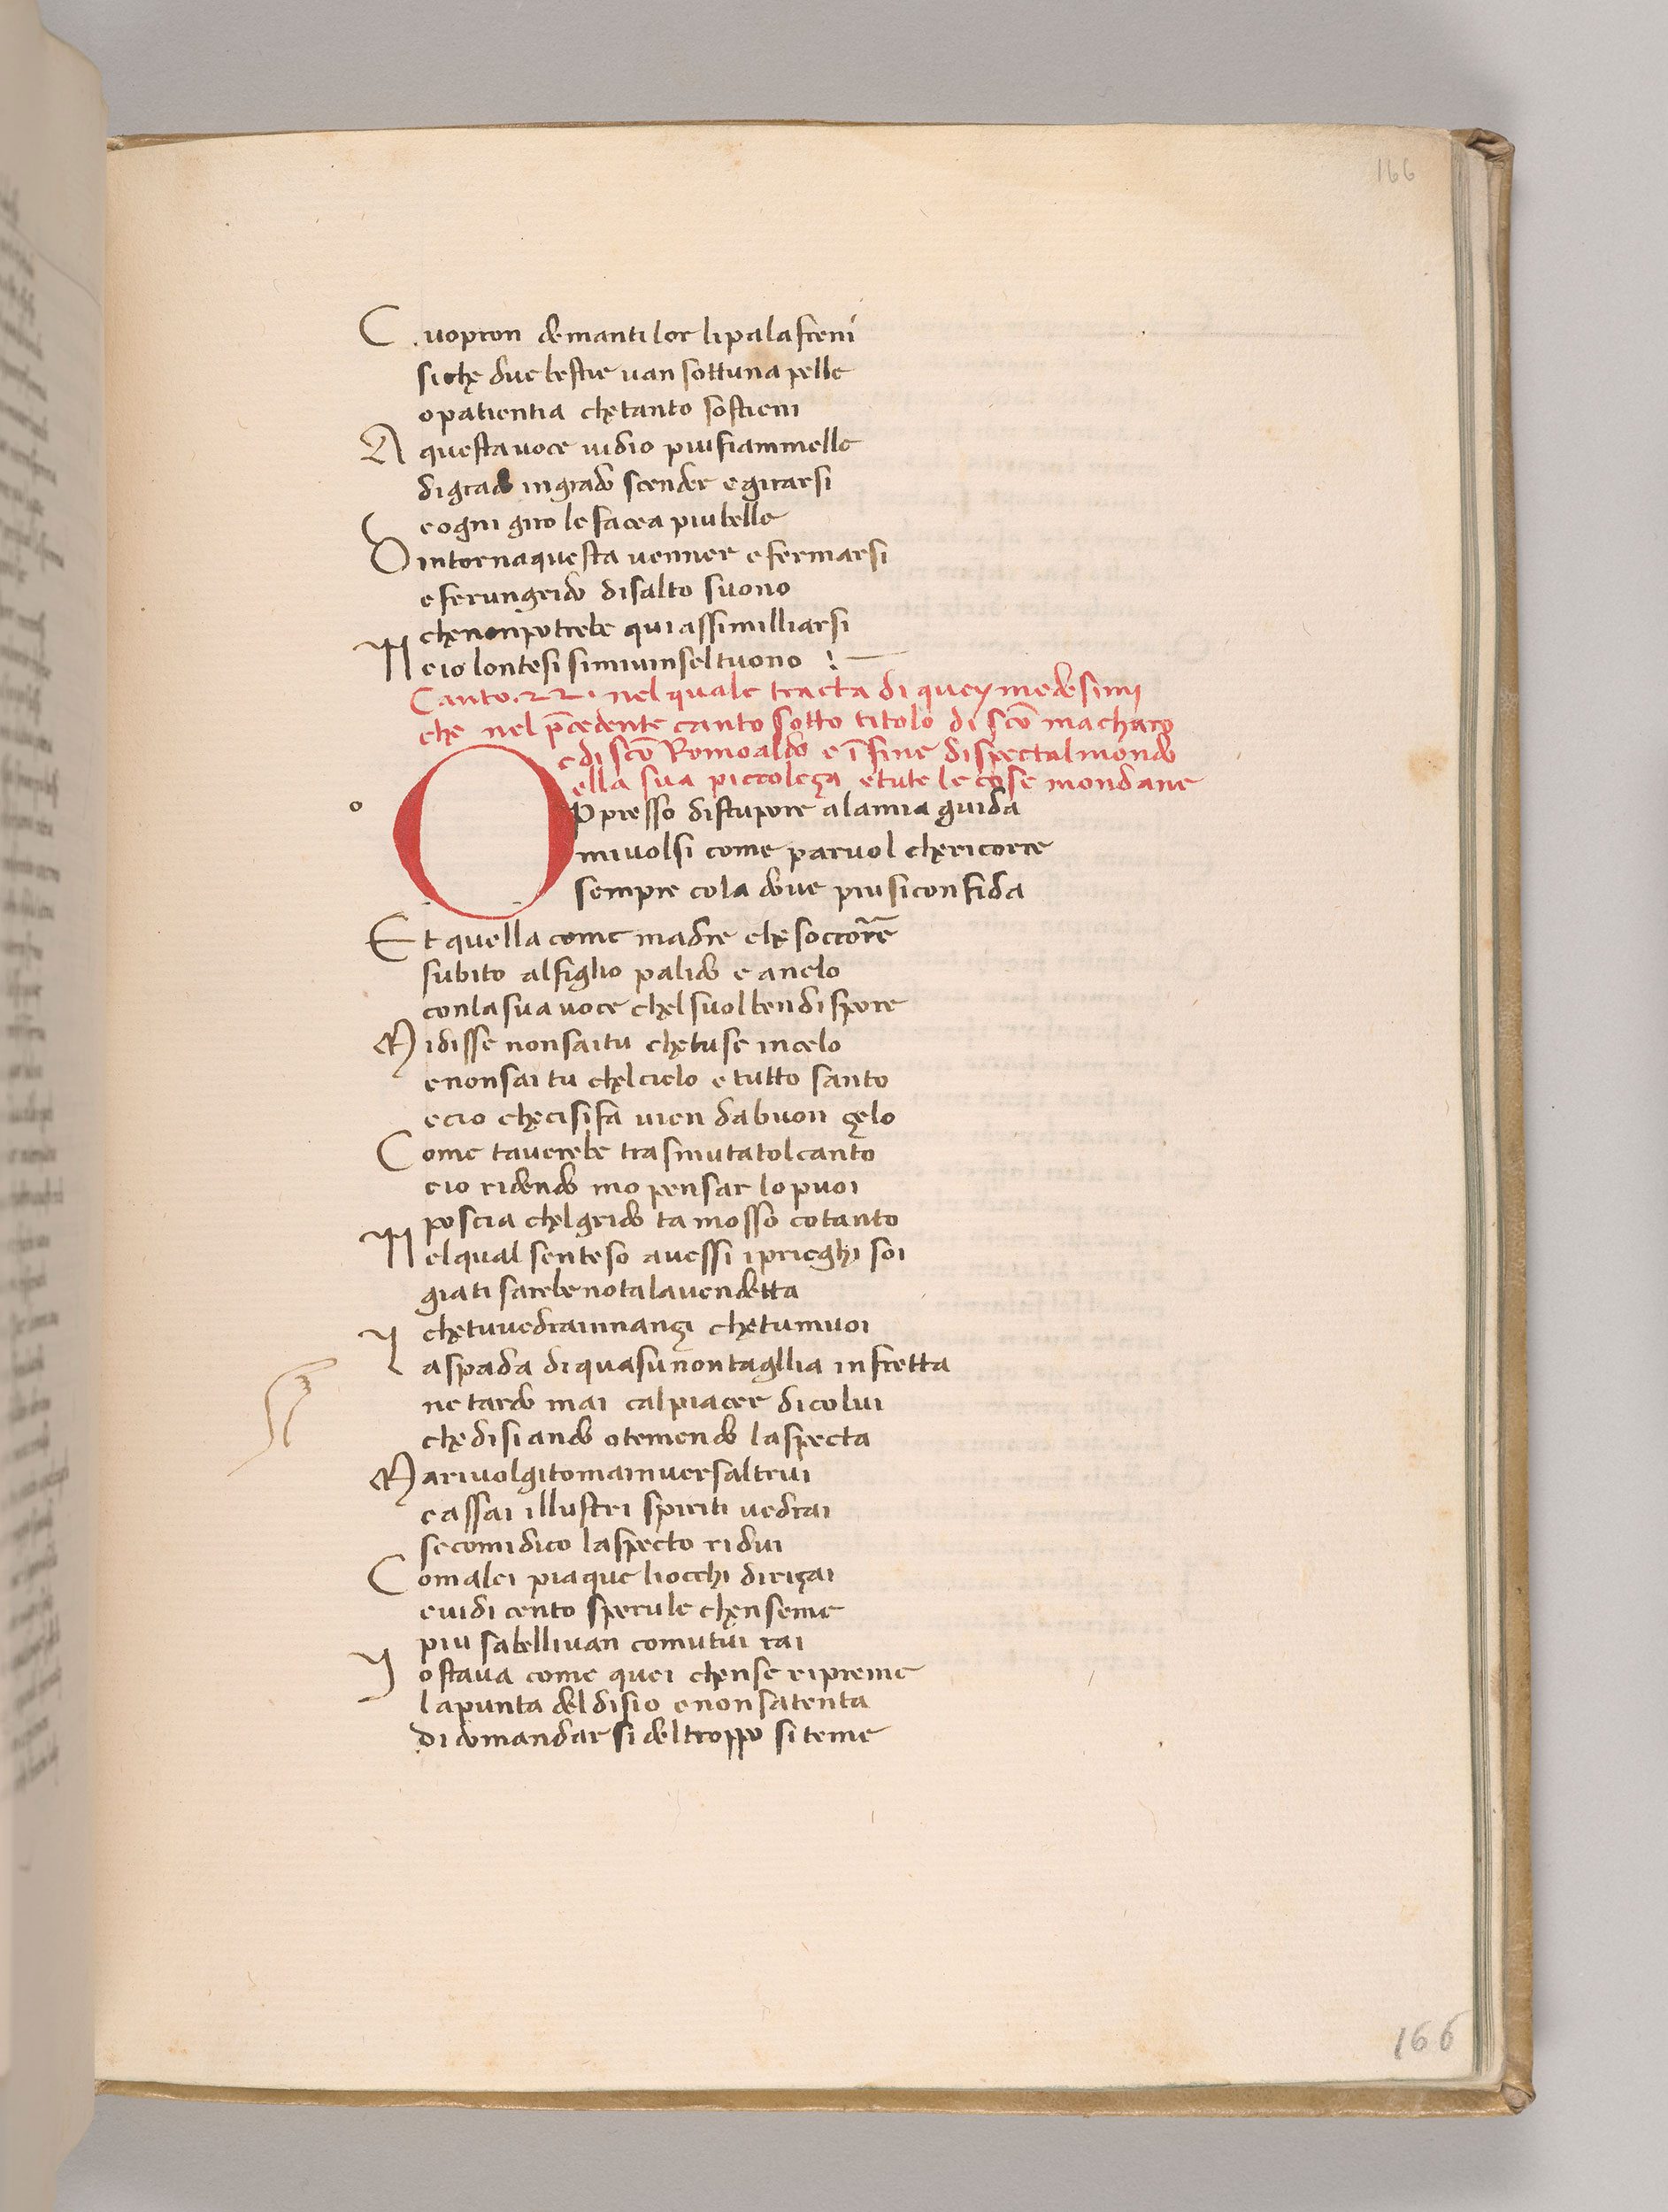 166
C uopron demanti lor li palafreni
siche due bestie uan sottuna pelle
o patientia che tanto sostieni
A questa uoce uidio piu fiammelle
di grado in grado scender e girarsi
e ogni giro le facea piu belle
D intorna questa uenner e fermarsi
e fer un grido di salto suono
che non potrebe qui assimilliarsi
N e io lontesi si mi uinsel tuono :
Canto .22. nel quale tracta di quey medesimi
che nel p̄cedente canto sotto titolo di sc̄o macharo
e di sc̄o Romoaldo e ī fine dispectal mondo
ella sua piccoleça e tute le cose mondane
o
O Ppresso di stupore a la mia guida
mi uolsi come paruol che ricorre
sempre cola doue piu si confida
E t quella come madre che soccorre
subito al figlio palido e anelo
con la sua uoce chel suol ben dispore
M i disse non sai tu che tu se in celo
e non sai tu chel cielo e tutto santo
e cio che ci si fa uien da buon çelo
C ome tauerebe trasmutatol canto
e io ridendo mo pensar lo puoi
poscia chel grido ta mosso cotanto
N el qual senteso auessi i prieghi soi
gia ti sarebe nota la uendetta
che tu uedrai innançi che tu muoi
L a spada di qua su non tagllia in fretta
ne tardo mai cal piacer di colui
che disiando o temendo laspecta
M a riuolgito mai inuers altrui
e assai illustri spiriti uedrai
se comi dico laspecto ridui
C om a lei piaque li occhi diriçai
e uidi cento sperule chenseme
piu sabelliuan co mutui rai
I o staua come quei chense ripreme
la punta del disio e non satenta
di domandar si del troppo si teme
166